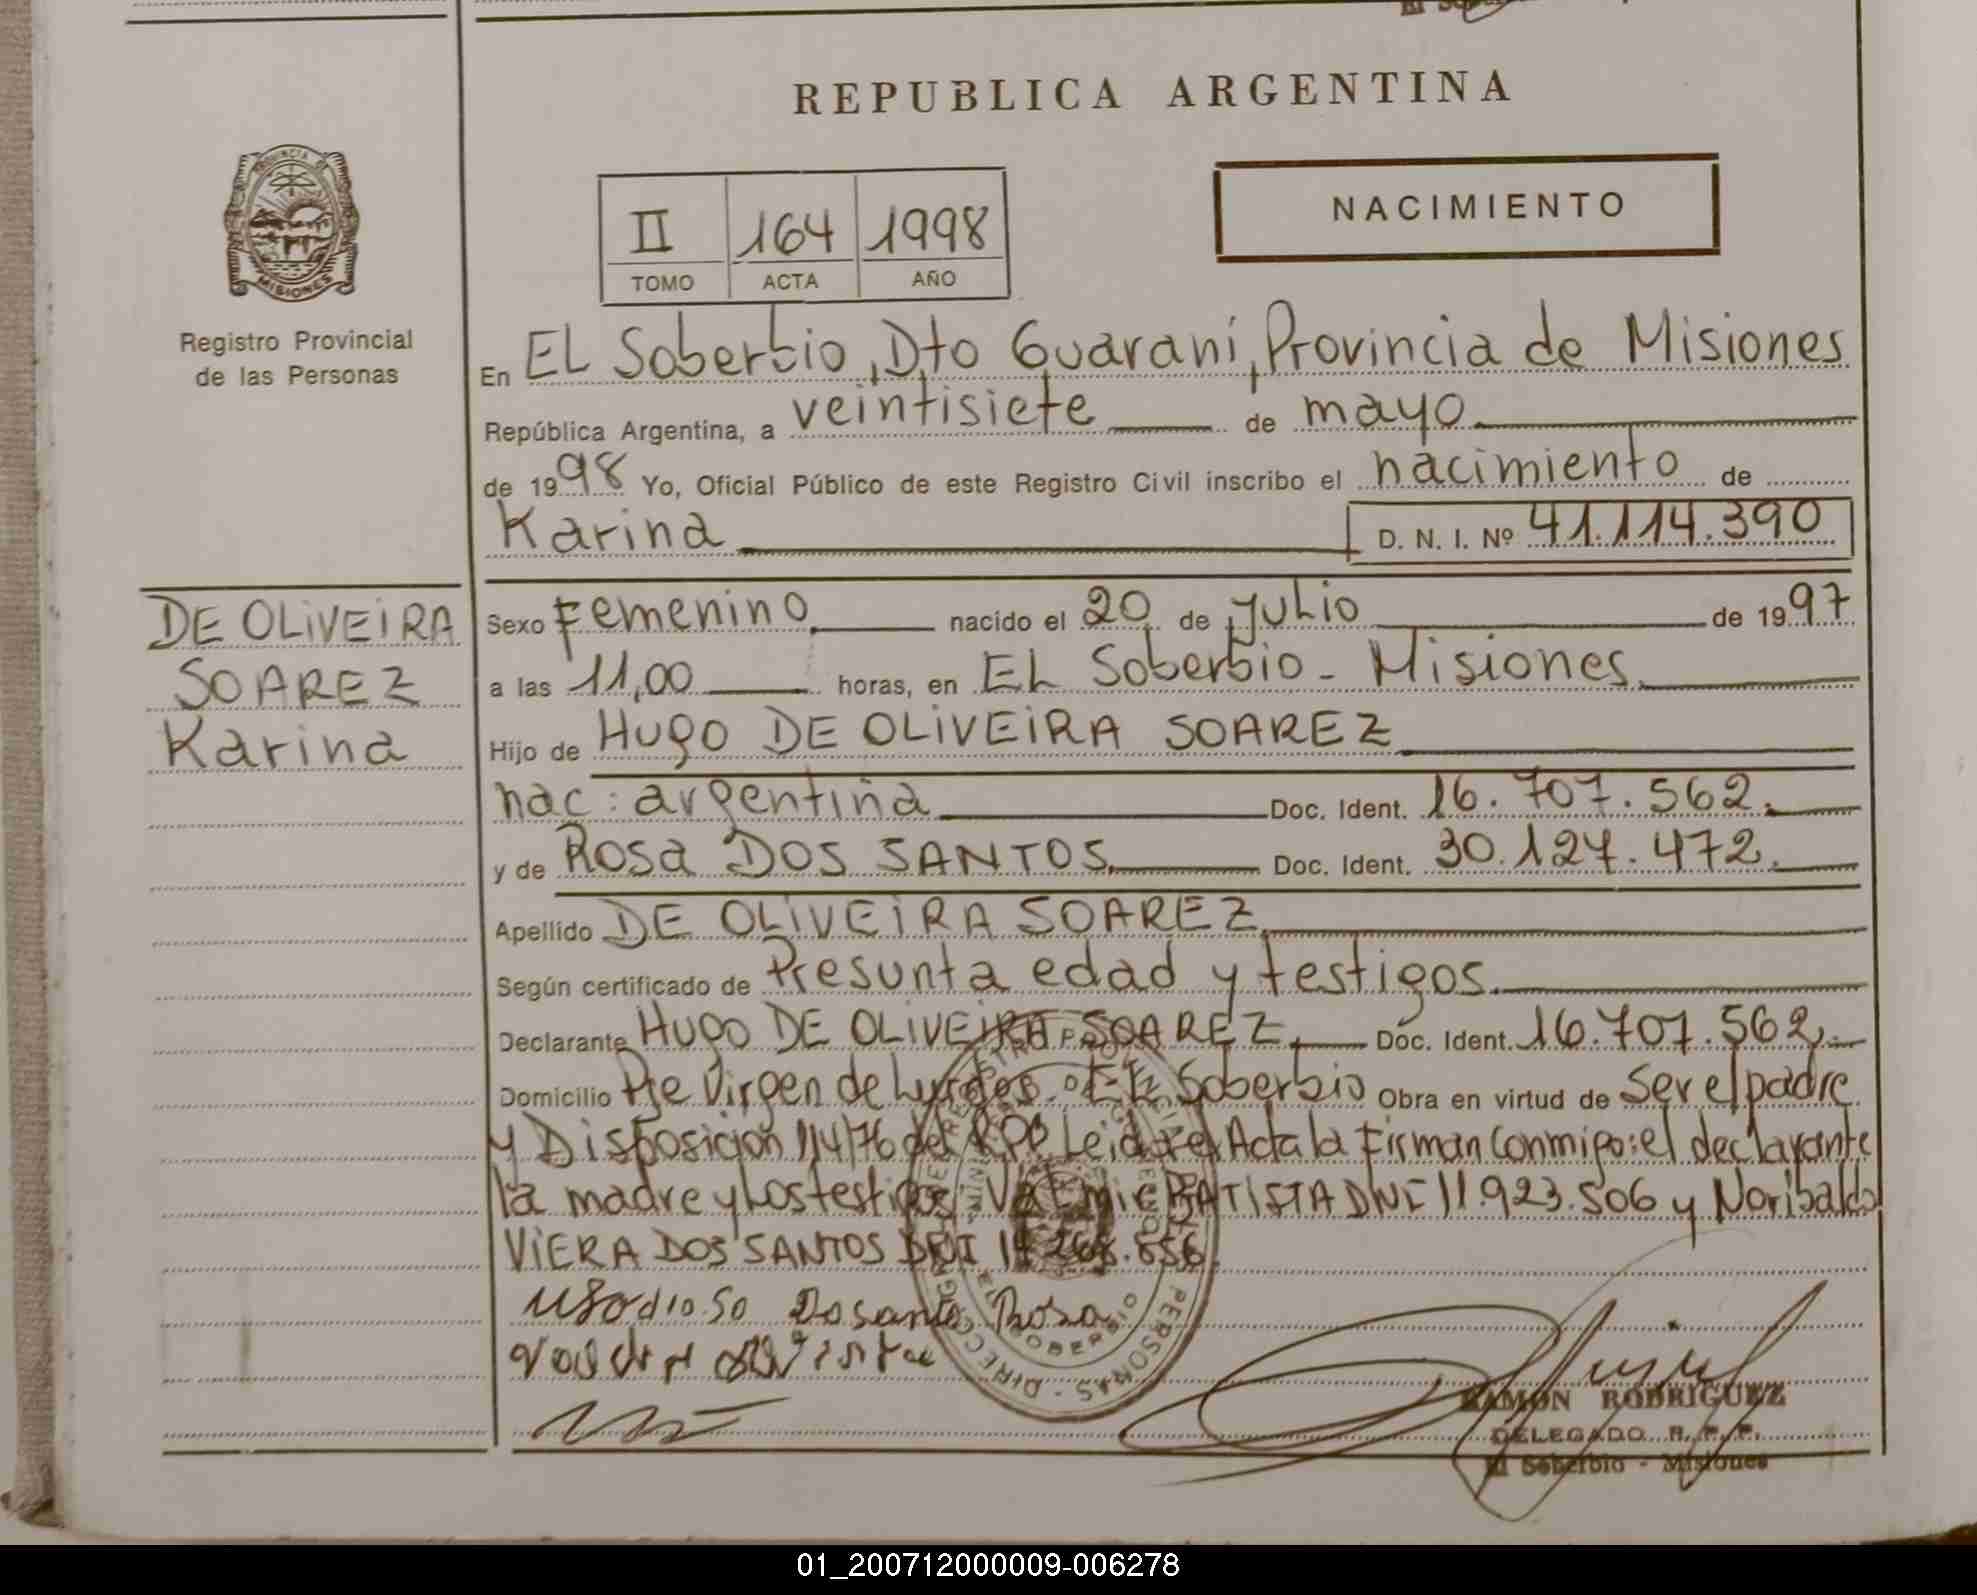 REPUBLICA ARGENTINA
PROVINCIA DE
MISIONES
Registro Provincial
de las Personas
II 164 1998
TOMO ACTA AÑO
NACIMIENTO
En EL Soberbio, Dto Guaraní, Provincia de Misiones
República Argentina, a veintisiete de mayo
de 1998 Yo, Oficial Público de este Registro Civil inscribo el nacimiento de
Karina D. N. I. Nº 41.114.390
DE OLIVEIRA
SOAREZ
Karina
Sexo Femenino nacido el 20 de Julio de 1997
a las 11,00 horas, en EL Soberbio - Misiones
Hijo de Hugo DE OLIVEIRA SOAREZ
nac: argentina Doc. Ident. 16.707.562.
y de Rosa DOS SANTOS Doc. Ident. 30.127.472.
Apellido DE OLIVEIRA SOAREZ
Según certificado de Presunta edad y testigos.
Declarante HUGO DE OLIVEIRA SOAREZ. Doc. Ident. 16.707.562.
Domicilio Pje Virgen de EL Soberbio Obra en virtud de Ser el padre
y Disposición 114/76 del Leida el Acta la Firman Conmigo: el declarante
la madre y Los testigos BATISTA DNI 11.923.506 y Noribaldo
VIERA DOS SANTOS DNI
Rosa
RAMON RODRIGUEZ
DELEGADO R. P. P.
El Soberbio - Misiones
01_200712000009-006278